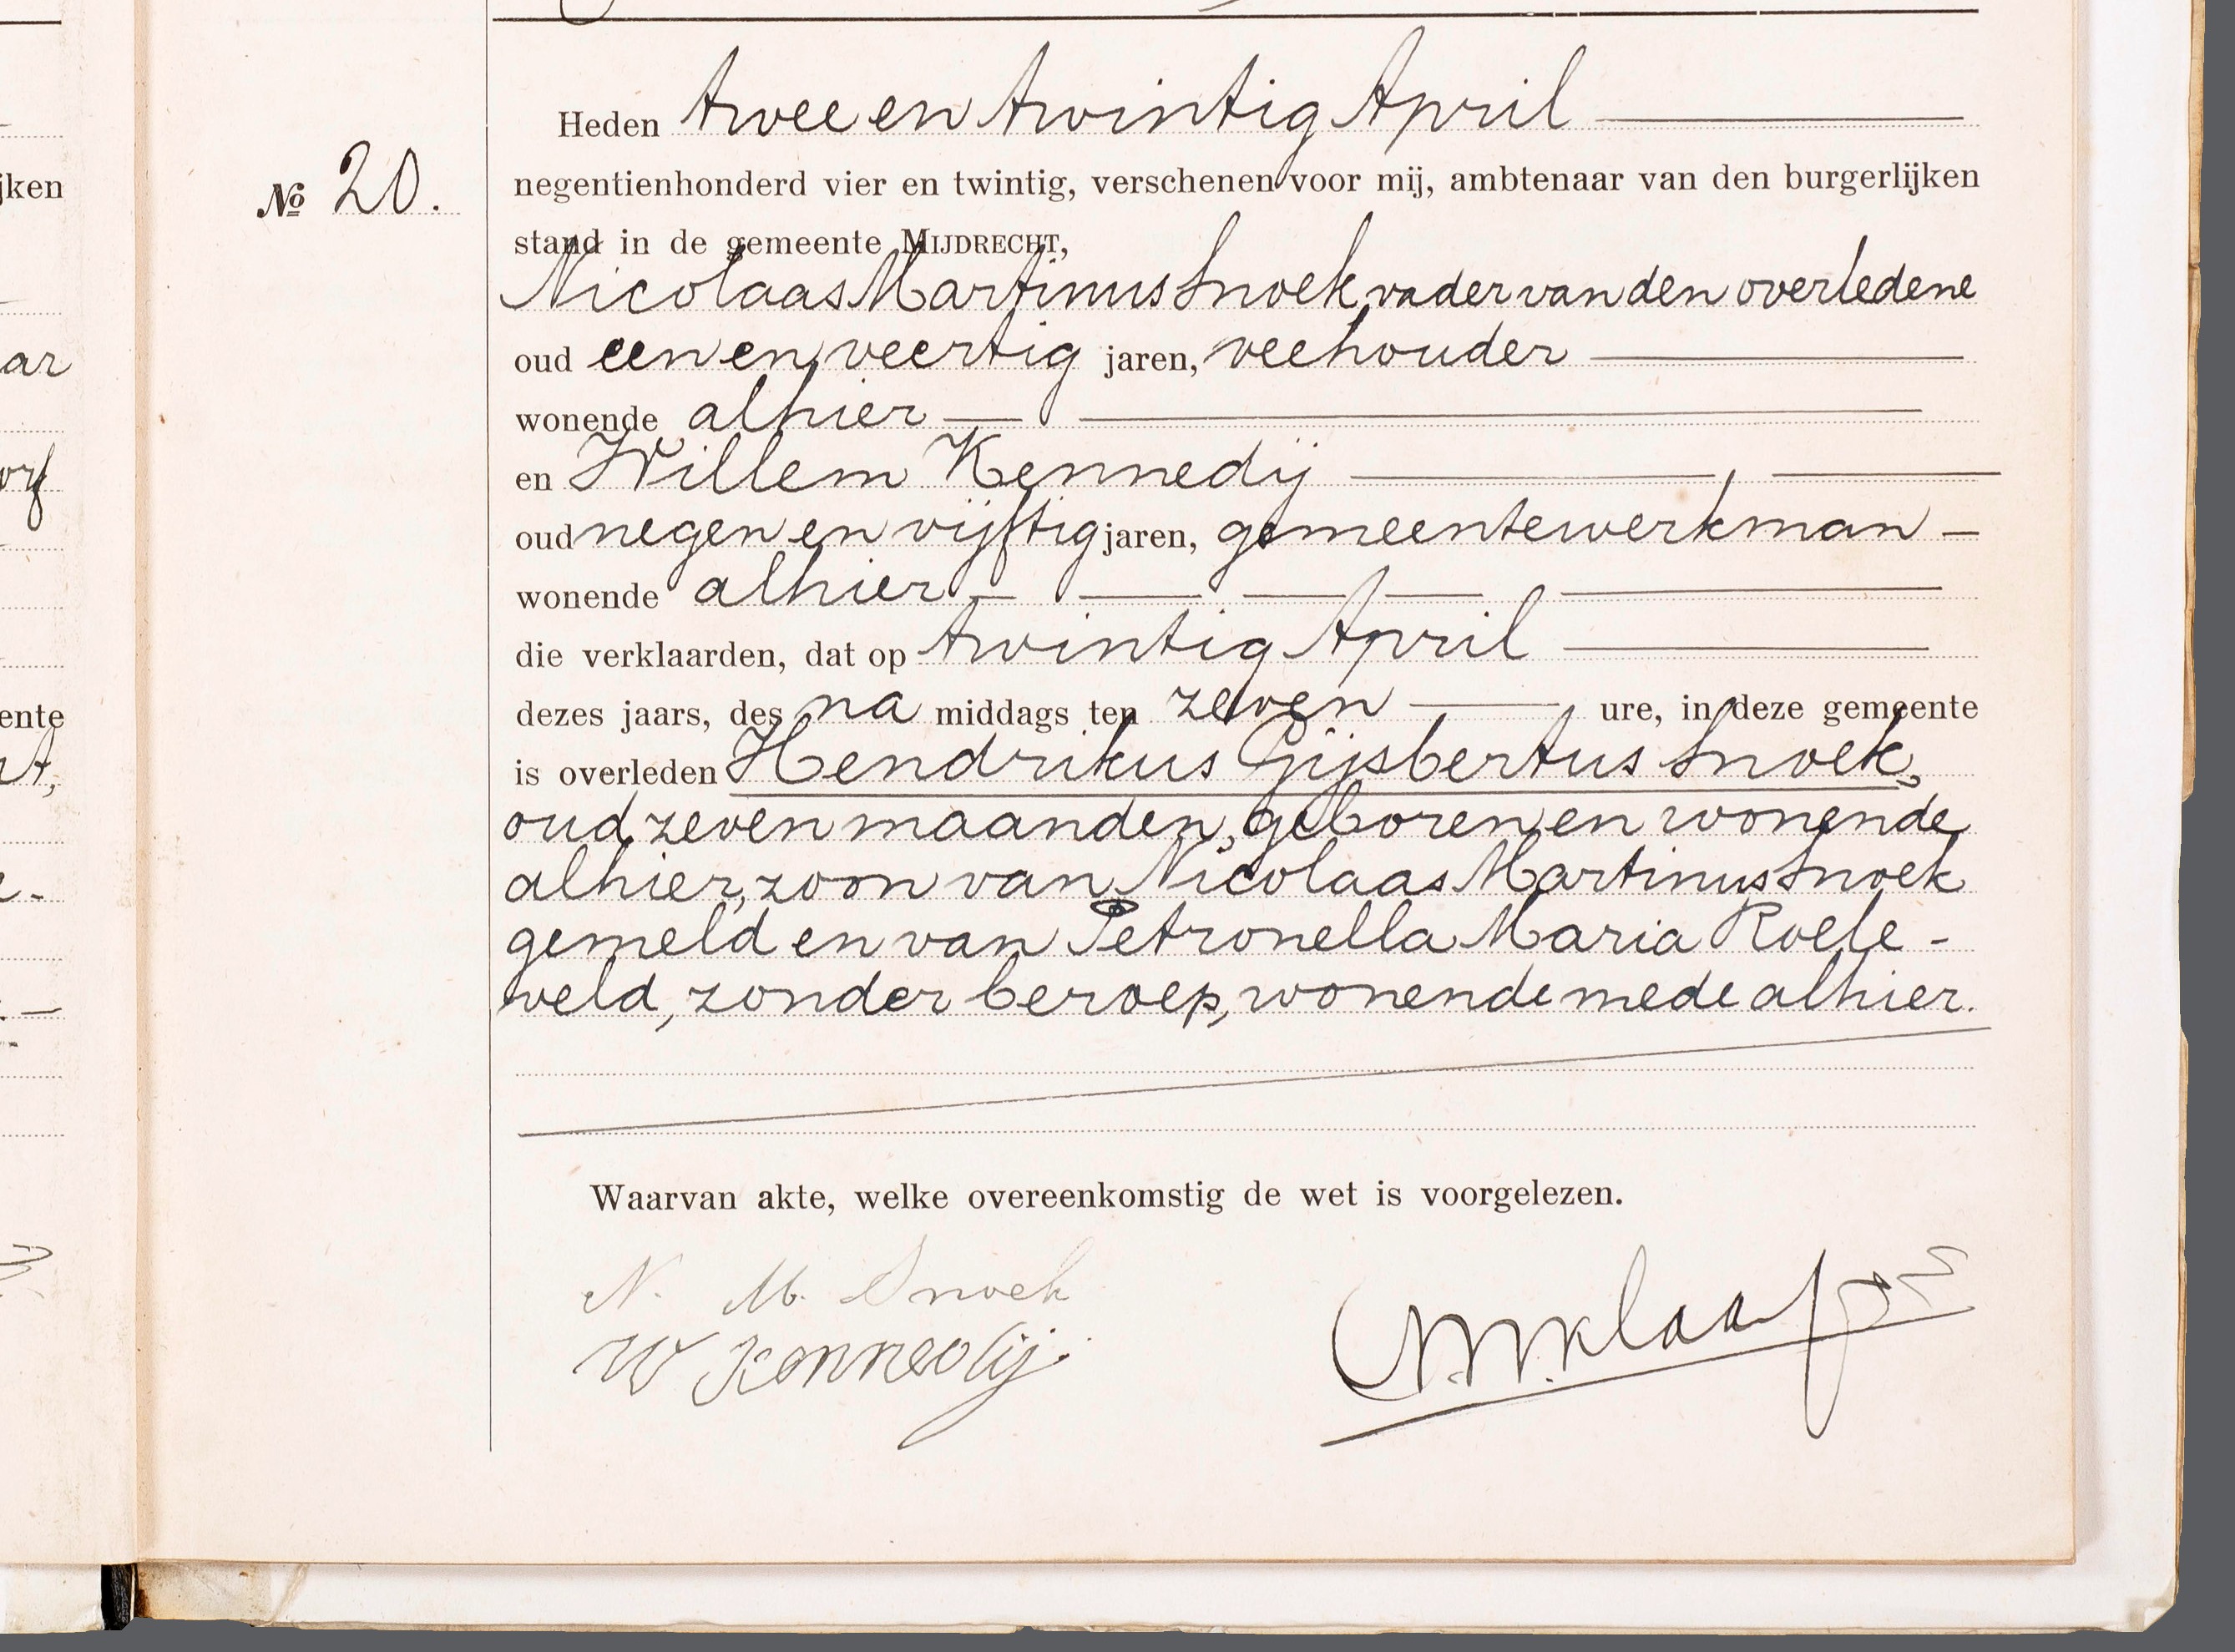 Heden twee en twintig April
negentienhonderd vier en twintig, verschenen voor mij, ambtenaar van den burgerlijken
No 20.
stand in de gemeente MIJDRECHT,
Nicolaas Martinus Snoek, vader van den overledene
oud een en veertig jaren, veehouder
wonende alhier
en Willem Kennedij
oud negen en vijftig jaren, gemeentewerkman
wonende alhier
die verklaarden, dat op twintig April
dezes jaars, des na middags ten zeven ure, in deze gemeente
is overleden Hendrikus Gijsbertus Snoek,
oud zeven maanden, geboren en wonende
alhier, zoon van Nicolaas Martinus Snoek
gemeld en van Petronella Maria Roele-
veld, zonder beroep, wonende mede alhier.
Waarvan akte, welke overeenkomstig de wet is voorgelezen.
N. M. Snoek
W Kennedij.
jken
ar
ente